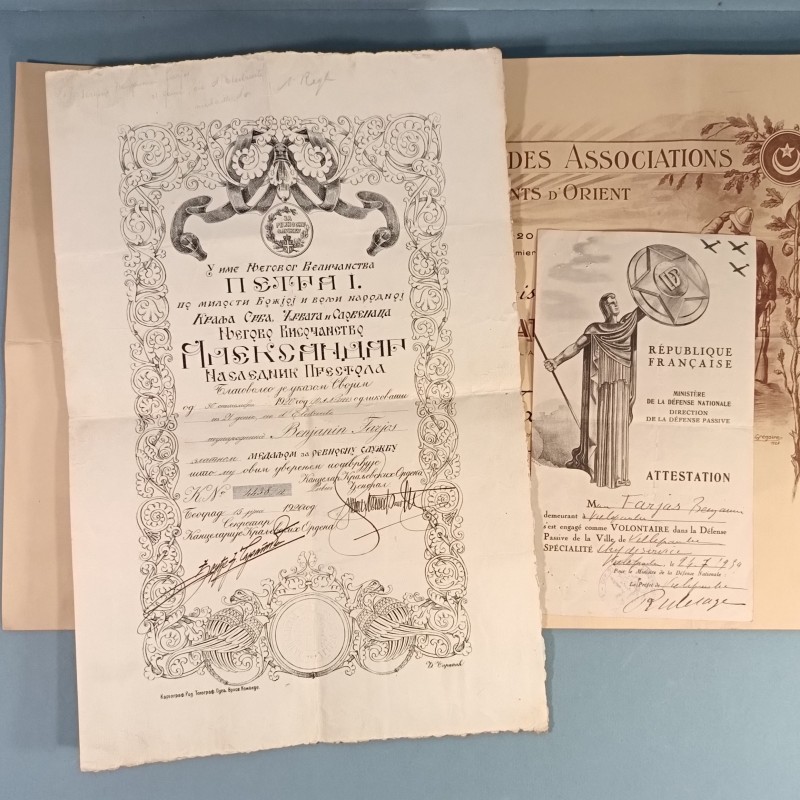 1 Regt
ЗА
РЕВНОСНУ
СЛУЖБУ
У име Његовог Величанства
ПЕТРА I.
по милости Божјој и вољи народној
Краља Срба, Хрвата и Словенаца
Његово Височанство
Александар
Наследник Престола
Благоволео је указом Својим
од 192 год. одликовати
Benjamin Farjas
златном медаљом за ревносну службу
што му овим уверењем потврђује
Канцелар Краљевских Ордена
К. № 4438
Ђенерал
Београд 1920 год
Секретар
Канцеларије Краљевских Ордена
DES ASSOCIATIONS
NTS D'ORIENT
20
RÉPUBLIQUE
FRANÇAISE
MINISTÈRE
DE LA DÉFENSE NATIONALE
DIRECTION
DE LA DÉFENSE PASSIVE
ATTESTATION
M Farjas Benjamin
demeurant à Villepinte
s'est engagé comme VOLONTAIRE dans la Défense
Passive de la Ville de Villepinte
SPÉCIALITÉ chef de service
Villepinte, le 24.7.1939
Pour le Ministre de la Défense Nationale :